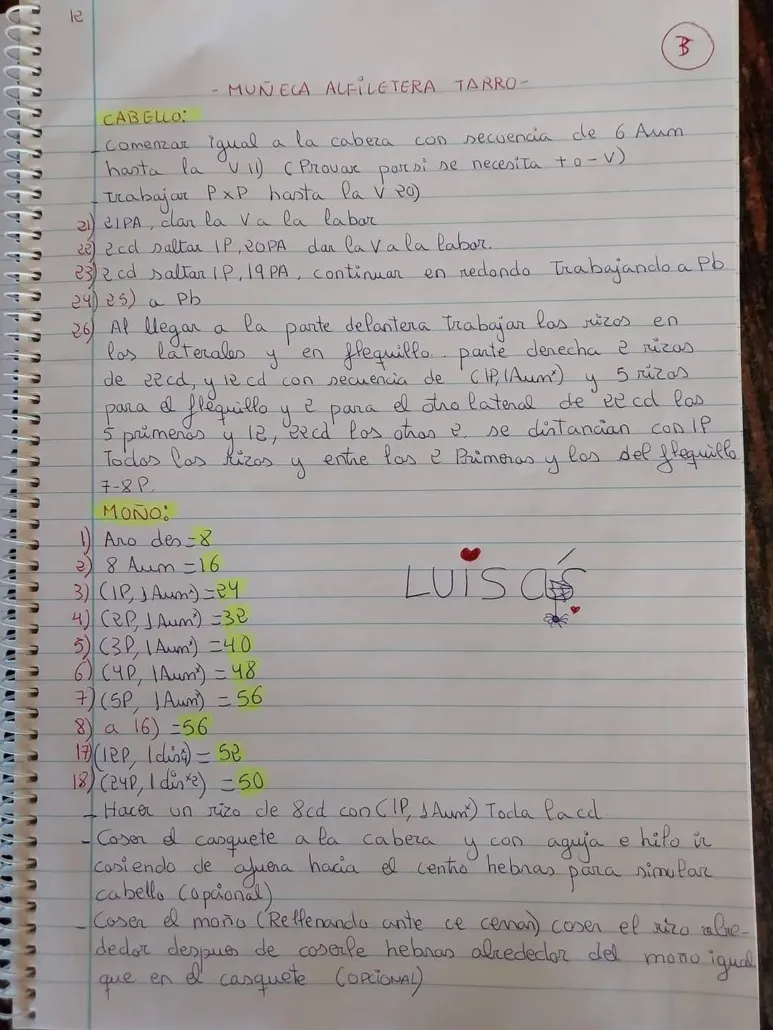 12
B
- MUÑECA ALFILETERA TARRO -
CABELLO:
- Comenzar igual a la cabeza con secuencia de 6 Aum
hasta la V 11) (Provar por si se necesita + o - V)
- Trabajar P x P hasta la V 20)
21) 21PA, dar la V a la labor
22) 2cd saltar 1P, 20PA dar la V a la labor.
23) 2cd saltar 1P, 19PA, continuar en redondo Trabajando a Pb
24) 25) a Pb
26) Al llegar a la parte delantera Trabajar los rizos en
los laterales y en flequillo. parte derecha 2 rizos
de 22cd, y 12 cd con secuencia de (1P, 1Aum²) y 5 rizos
para el flequillo y 2 para el otro lateral de 22 cd los
5 primeros y 12, 22cd los otros 2. se distancian con 1P
Todos los Rizos y entre los 2 Primeros y los del flequillo
7-8 P.
MOÑO:
1) Aro des = 8
2) 8 Aum = 16
3) (1P, 1Aum²) = 24
4) (2P, 1Aum²) = 32
5) (3P, 1Aum²) = 40
6) (4P, 1Aum²) = 48
7) (5P, 1Aum) = 56
8) a 16) = 56
17) (12P, 1dis4) = 52
18) (24P, 1dis*2) = 50
LUISCAS
- Hacer un rizo de 8cd con (1P, 1Aum²) Toda la cd
- Coser el casquete a la cabeza y con aguja e hilo ir
cosiendo de afuera hacia el centro hebras para simular
cabello (opcional)
- Coser el moño (Rellenando ante ce cerrar) coser el rizo alre-
dedor despues de coserle hebras alrededor del moño igual
que en el casquete (OPCIONAL)